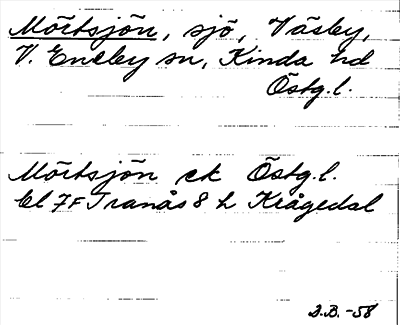 Mörtsjön, sjö, Väsby,
V. Eneby sn, Kinda hd
Östg.l.
Mörtsjön ek Östg.l.
bl 7F Tranås 8 h Krågedal
D.B. -58